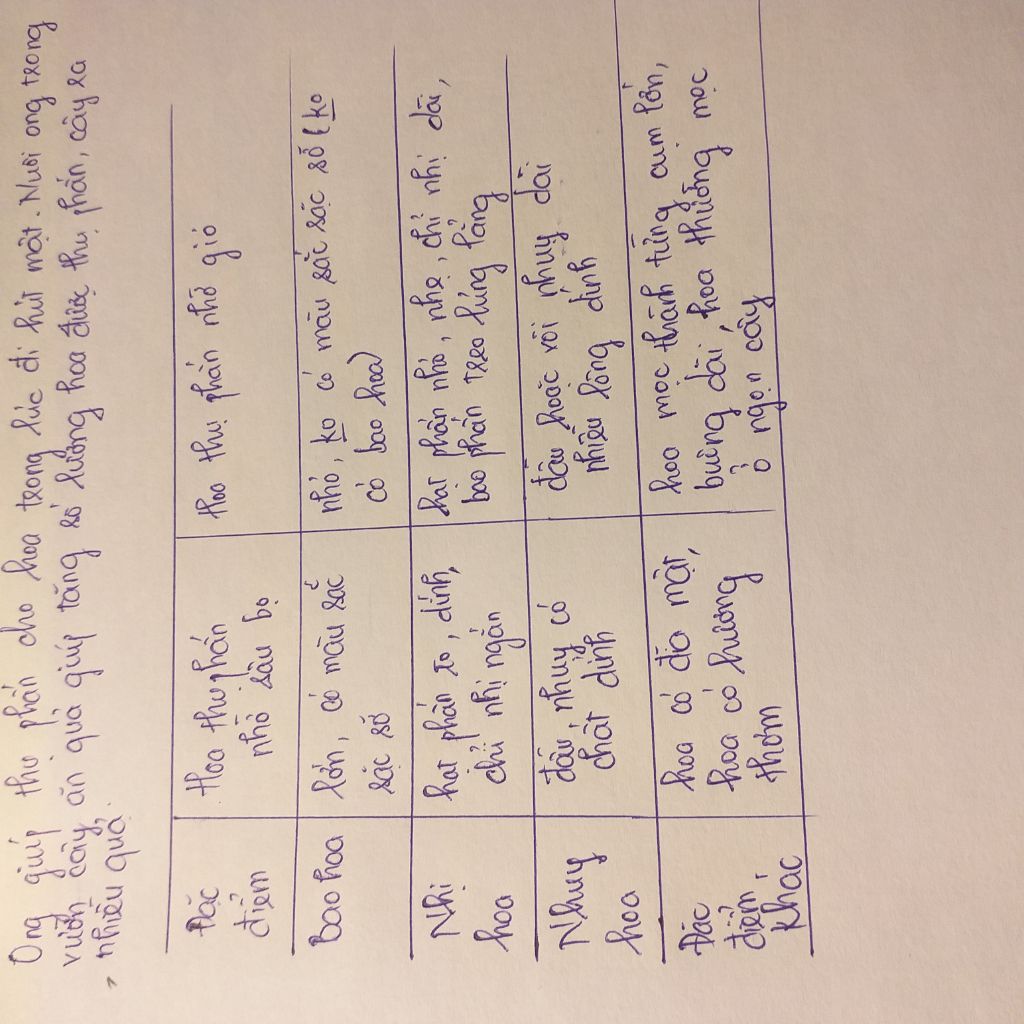 Ong giúp thụ phấn cho hoa trong lúc đi hút mật. Nuôi ong trong
vườn cây ăn quả giúp tăng số lượng hoa được thụ phấn, cây ra
nhiều quả
Đặc
điểm
Hoa thụ phấn
nhờ sâu bọ
Hoa thụ phấn nhờ gió
Bao hoa
lớn, có màu sắc
sặc sỡ
nhỏ, ko có màu sắc sặc sỡ (ko
có bao hoa)
Nhị
hoa
hạt phấn to, dính,
chỉ nhị ngắn
hạt phấn nhỏ, nhẹ, chỉ nhị dài,
bao phấn treo lủng lẳng
Nhụy
hoa
đầu nhụy có
chất dính
đầu hoặc vòi nhụy dài
nhiều lông dính
Đặc
điểm
khác
hoa có đĩa mật,
hoa có hương
thơm
hoa mọc thành từng cụm lớn,
buông dài, hoa thường mọc
ở ngọn cây